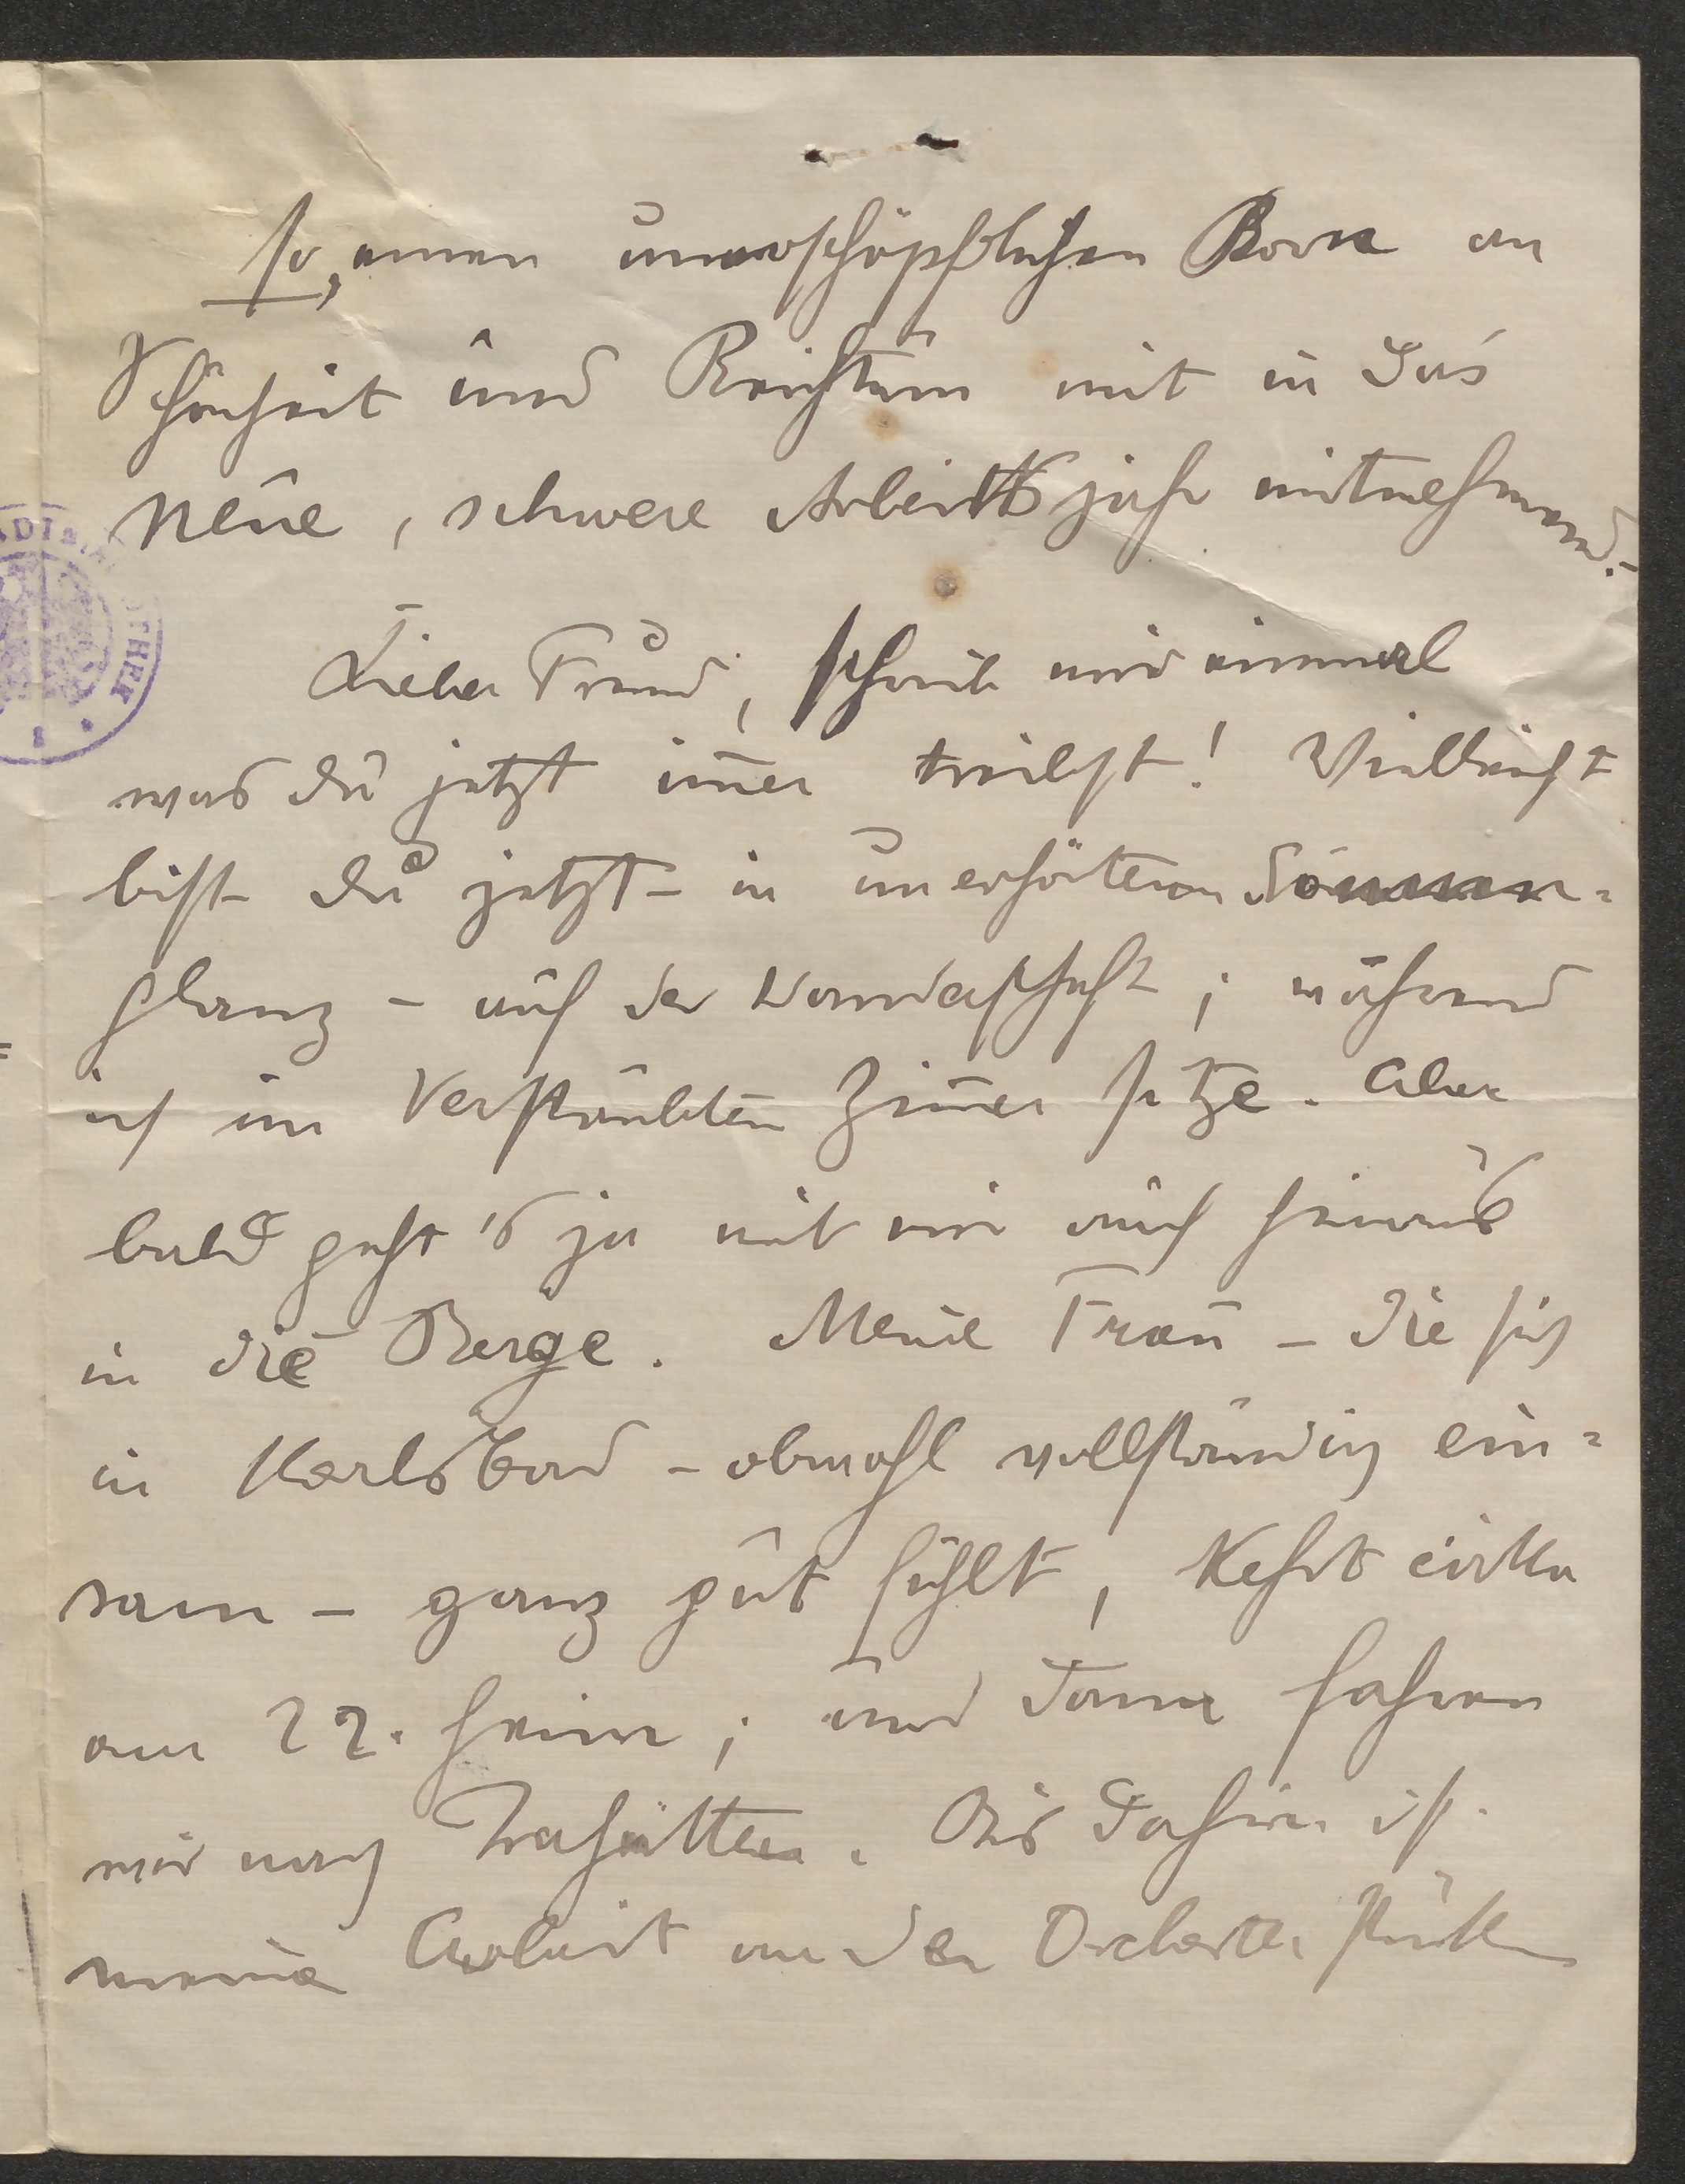 so, einen unerschöpflichen Born an
Schönheit und Reichtum mit in das
neue, schwere Arbeitsjahr mitnehmend.-
Lieber Freund, schreib mir einmal
was du jetzt im̄er treibst! Vielleicht
bist du jetzt - in unerhörtem Sonnen=
glanz - auf der Wanderschaft; während
ich im verstaubten Zim̄er sitze. Aber
bald geht's ja mit mir auch hinaus
in die Berge. Meine Frau - die sich
in Karlsbad - obwohl vollständig ein=
sam - ganz gut fühlt, kehrt cirka
am 22. heim; und dann fahren
wir nach Trahütten. Bis dahin ist
meine Arbeit an den Orchesterstücken